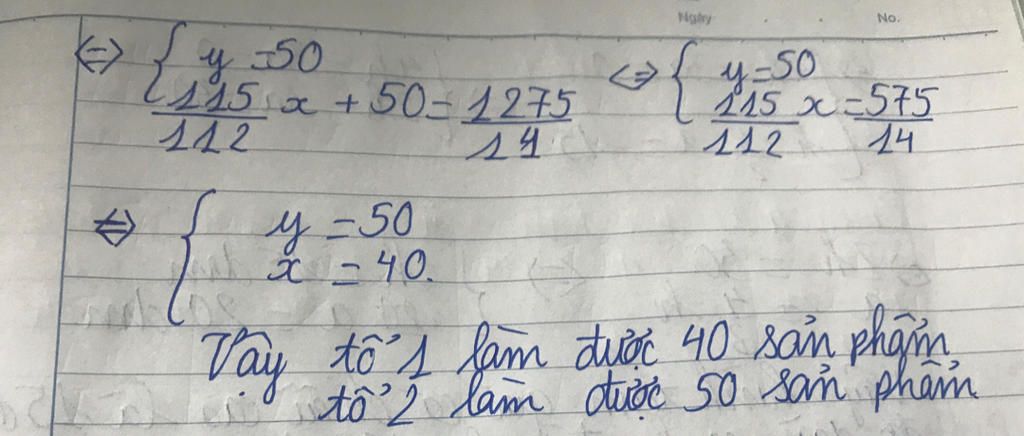 Ngày No.
⇔ { y = 50 ⇔ { y = 50
115/112 x + 50 = 1275/14 115/112 x = 575/14
⇔ { y = 50
x = 40.
Vậy tổ 1 làm được 40 sản phẩm
tổ 2 làm được 50 sản phẩm